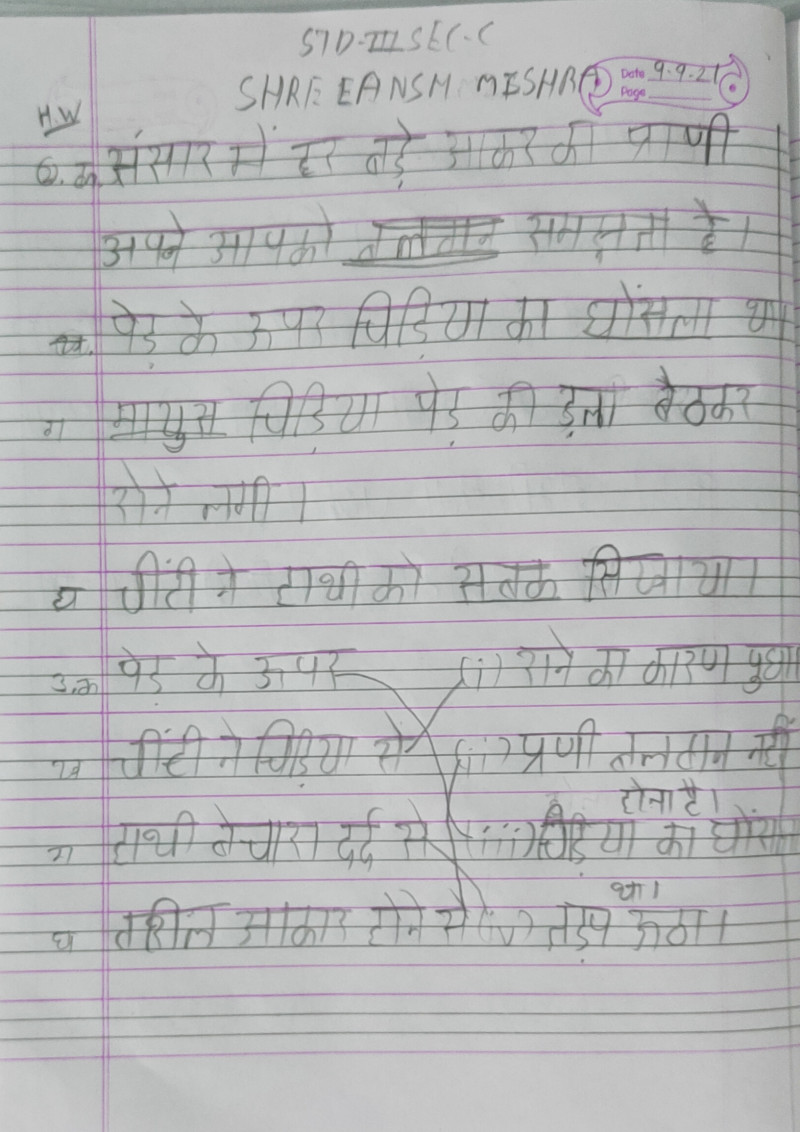 STD-III SEC-C
SHREEANSH MISHRA Date 9.9.21
Page
H.W
संसार में हर बड़े आकर का प्राणी
अपने आपको बलवान समझता है।
ख. पेड़ के ऊपर चिड़िया का घोंसला था
ग मायुस चिड़िया पेड़ की ड़ला बैठकर
रोने लगी।
घ चींटी ने हाथी को सबक सिखाया।
3.क पेड़ के ऊपर (i) राने का कारण पुछा
ख चींटी ने चिड़िया से (ii) प्रणी बलवान नहीं
होना है।
ग हाथी बेचारा दर्द से (iii) चिड़िया का घोंस
था।
घ आकार होने से (iv) तड़प ऊठा।